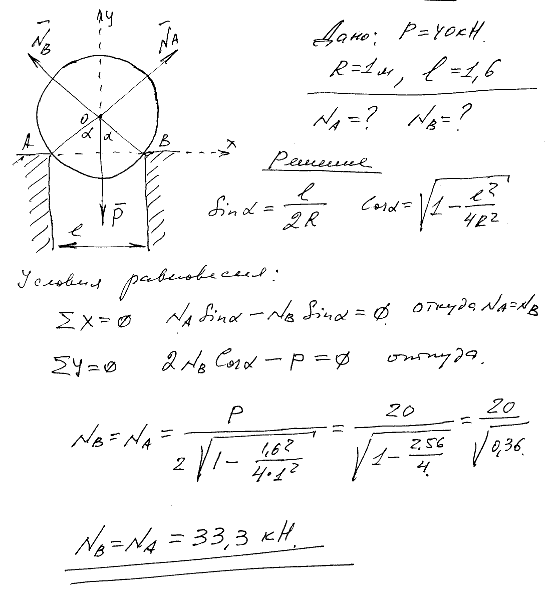 y
N̄_B N̄_A
Дано: P=40кН.
R=1м, l=1,6
N_A=? N_B=?
O
α α
A B x
P̄
l
Решение
Sinα = l/2R Cosα = √(1 − l²/4R²)
Условия равновесия:
ΣX=0 N_A Sinα − N_B Sinα = 0 откуда N_A=N_B
ΣY=0 2N_B Cosα − P = 0 откуда.
N_B = N_A = P/(2√(1 − 1,6²/4·1²)) = 20/√(1 − 2,56/4) = 20/√0,36.
N_B = N_A = 33,3 кН.